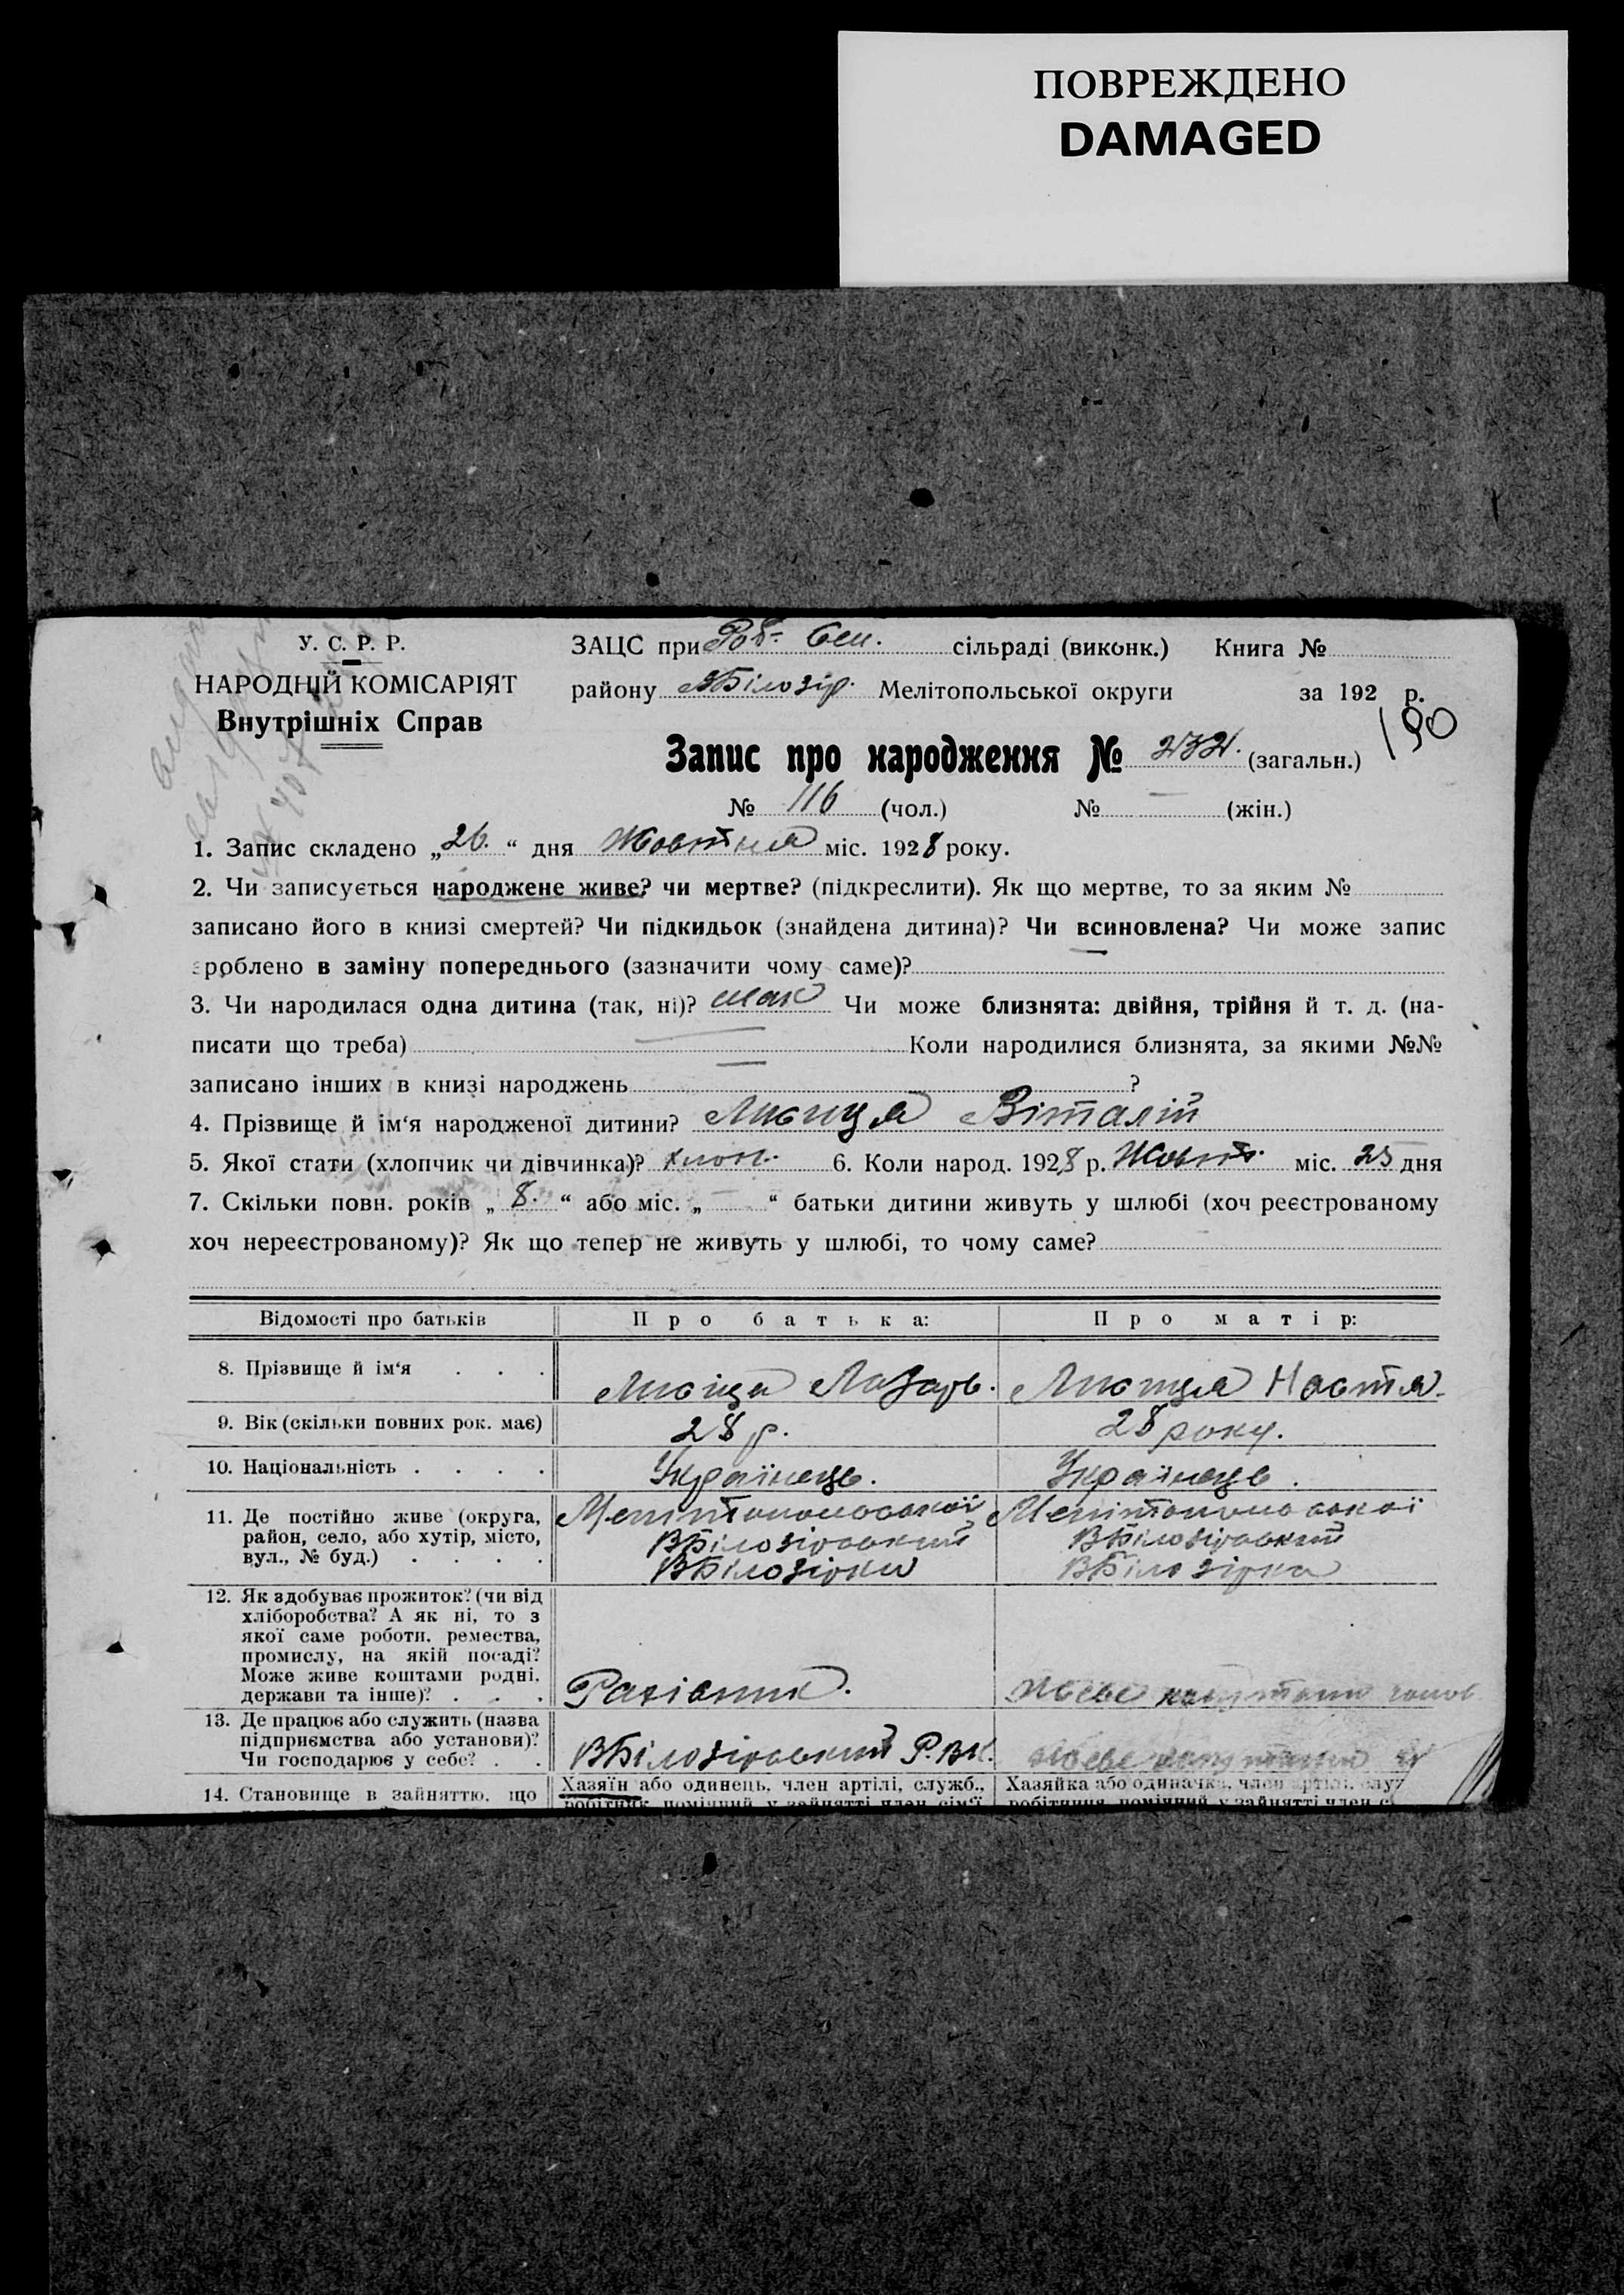 ПОВРЕЖДЕНО
DAMAGED
У. С. Р. Р.
НАРОДНІЙ КОМІСАРІЯТ
Внутрішніх Справ
ЗАЦС при Роб- Сел. сільраді (виконк.) Книга №
району ВБілозір. Мелітопольської округи за 192 р.
190
Запис про народження № 232. (загальн.)
№ 116 (чол.) № — (жін.)
1. Запис складено „26." дня Жовтня міс. 1928 року.
2. Чи записується народжене живе? чи мертве? (підкреслити). Як що мертве, то за яким №
записано його в книзі смертей? Чи підкидьок (знайдена дитина)? Чи всиновлена? Чи може запис
зроблено в заміну попереднього (зазначити чому саме)?
3. Чи народилася одна дитина (так, ні)? так Чи може близнята: двійня, трійня й т. д. (на-
писати що треба) — Коли народилися близнята, за якими №№
записано інших в книзі народжень — ?
4. Прізвище й ім'я народженої дитини? Лисиця Віталій
5. Якої стати (хлопчик чи дівчинка)? хлоп. 6. Коли народ. 1928 р. Жовт. міс. 25 дня
7. Скільки повн. років „8." або міс. „—" батьки дитини живуть у шлюбі (хоч реєстрованому
хоч нереєстрованому)? Як що тепер не живуть у шлюбі, то чому саме?
Відомості про батьків Про батька: Про матір:
8. Прізвище й ім'я . . . Лисіця Лазарь. Лисиця Настя.
9. Вік (скільки повних рок. має) 28 р. 28 року.
10. Національність . . . . Українець. Українець.
11. Де постійно живе (округа, Мелітопольської Мелітопольської
район, село, або хутір, місто, ВБілозірський ВБілозірський
вул., № буд.) . . . . ВБілозірка ВБілозірка
12. Як здобуває прожиток? (чи від
хліборобства? А як ні, то з
якої саме роботи, ремества,
промислу, на якій посаді?
Може живе коштами родні,
держави та інше)? . . . Живе коштами
13. Де працює або служить (назва
підприємства або установи)? ВБілозірський Р.ВК. Живе коштами
Чи господарює у себе? . .
14. Становище в зайняттю, що Хазяїн або одинець, член артілі, служб., Хазяйка або одиначка, член артілі, служ
робітник, помічний у зайнятті член сім'ї робітниця, помічний у зайнятті член с